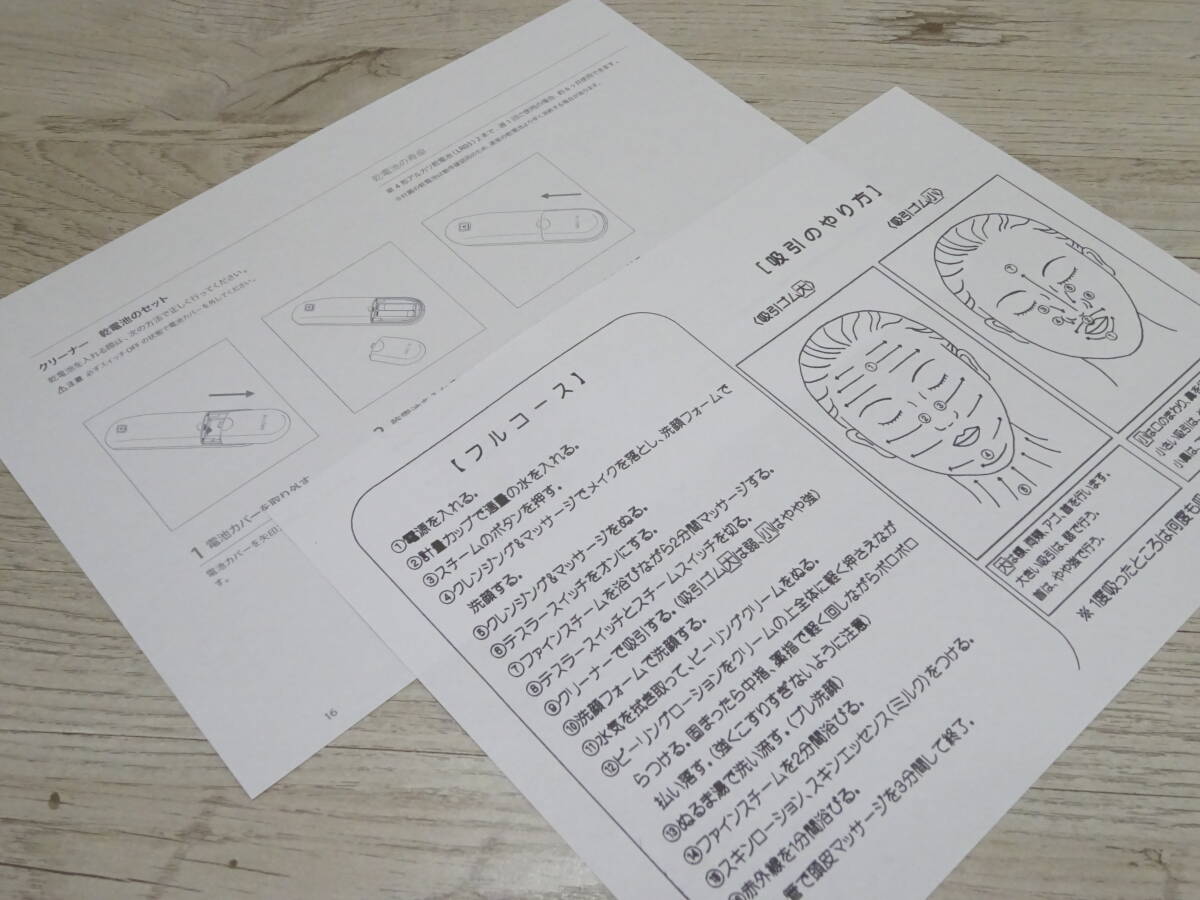 クリーナー 乾電池のセット
乾電池を入れる際は、次の方法で正しく行ってください。
⚠注意 必ずスイッチOFFの状態で電池カバーを外してください。
1 電池カバーを取りはずす
電池カバーを矢印
す。
乾電池の寿命
単4形アルカリ乾電池(LR03)2本で、週1回の使用の場合、約6ヶ月使用できます。
16
【フルコース】
①電源を入れる。
②計量カップで適量の水を入れる。
③スチームのボタンを押す。
④クレンジング&マッサージでメイクを落とし、洗顔フォームで
洗顔する。
⑤クレンジング&マッサージをぬる。
⑥テスラースイッチをオンにする。
⑦ファインスチームを浴びながら2分間マッサージする。
⑧テスラースイッチとスチームスイッチを切る。
⑨クリーナーで吸引する。(吸引ゴム大は弱、小はやや強)
⑩洗顔フォームで洗顔する。
⑪水気を拭き取って、ピーリングクリームをぬる。
⑫ピーリングローションをクリームの上全体に軽く押さえなが
らつける。固まったら中指、薬指で軽く回しながらポロポロ
払い落す。(強くこすりすぎないように注意)
⑬ぬるま湯で洗い流す。(プレ洗顔)
⑭ファインスチームを2分間浴びる。
⑮スキンローション、スキンエッセンス(ミルク)をつける。
⑯赤外線を1分間浴びる。
管で頭皮マッサージを3分間して終了。
[吸引のやり方]
〈吸引ゴム大〉
〈吸引ゴム小〉
①
②
③
④
⑤
大は額、両頬、アゴ、首を行います。
大きい吸引は、弱で行う。
首は、やや強で行う。
小は口のまわり、鼻を
小さい吸引は、
小鼻は、
※1度吸ったところは何度も